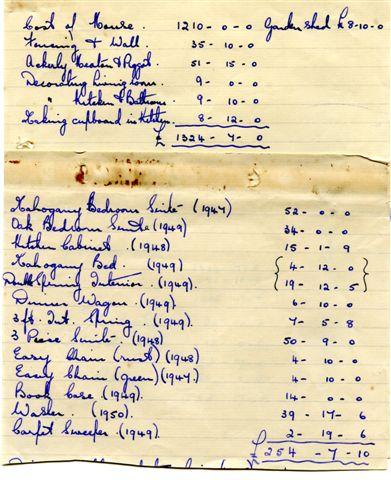 Cost of House. 1210-0-0 Garden Shed £8-10-0
Fencing & Wall. 35-10-0
51-15-0
Decorating Living Room. 9-0-0
" Kitchen & Bathroom. 9-10-0
Making cupboard in Kitchen. 8-12-0
£ 1324-7-0
Mahogany Bedroom Suite (1947) 52-0-0
Oak Bedroom Suite (1949) 34-0-0
Kitchen Cabinet. (1948) 15-1-9
Mahogany Bed. (1949) 4-12-0
Spring Interior. (1949) 19-12-5
Dinner Wagon. (1949) 6-10-0
3ft. Int. Spring. (1949) 7-5-8
3 Piece Suite. (1948) 50-9-0
Easy Chair (rust) (1948) 4-10-0
Easy Chair (green) (1947) 4-10-0
Book Case. (1949) 14-0-0
Washer. (1950) 39-17-6
Carpet Sweeper. (1949) 2-19-6
£254-7-10